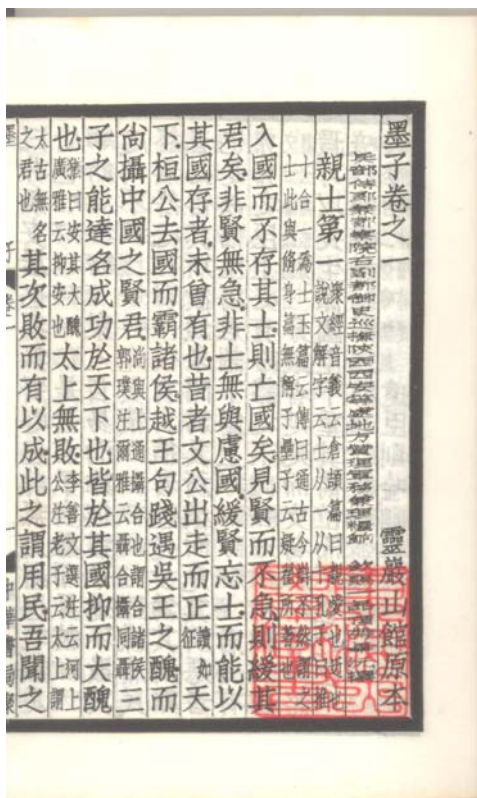 墨子卷之一 靈巖山館原本
兵部侍郎兼都察院右副都御史巡撫陝西西安等處地方贊理軍務兼理糧餉 欽賜一品頂帶畢沅撰
親士第一 眾經音義云倉頡篇曰親愛也近也說文解字云士从一从十孔子曰推
十合一為士玉篇云傳曰通古今辯不然謂之士此與脩身篇無稱子墨子云疑翟所著也
入國而不存其士則亡國矣見賢而不急則緩其
君矣非賢無急非士無與慮國緩賢忘士而能以
其國存者未曾有也昔者文公出走而正讀如征天
下桓公去國而霸諸侯越王句踐遇吳王之醜而
尚攝中國之賢君尚與上通攝合也謂合諸侯郭璞注爾雅云聶合攝同聶三
子之能達名成功於天下也皆於其國抑而大醜
也猶曰安其大醜廣雅云抑安也太上無敗李善文選注云河上公注老子云太上謂
太古無名之君也其次敗而有以成此之謂用民吾聞之